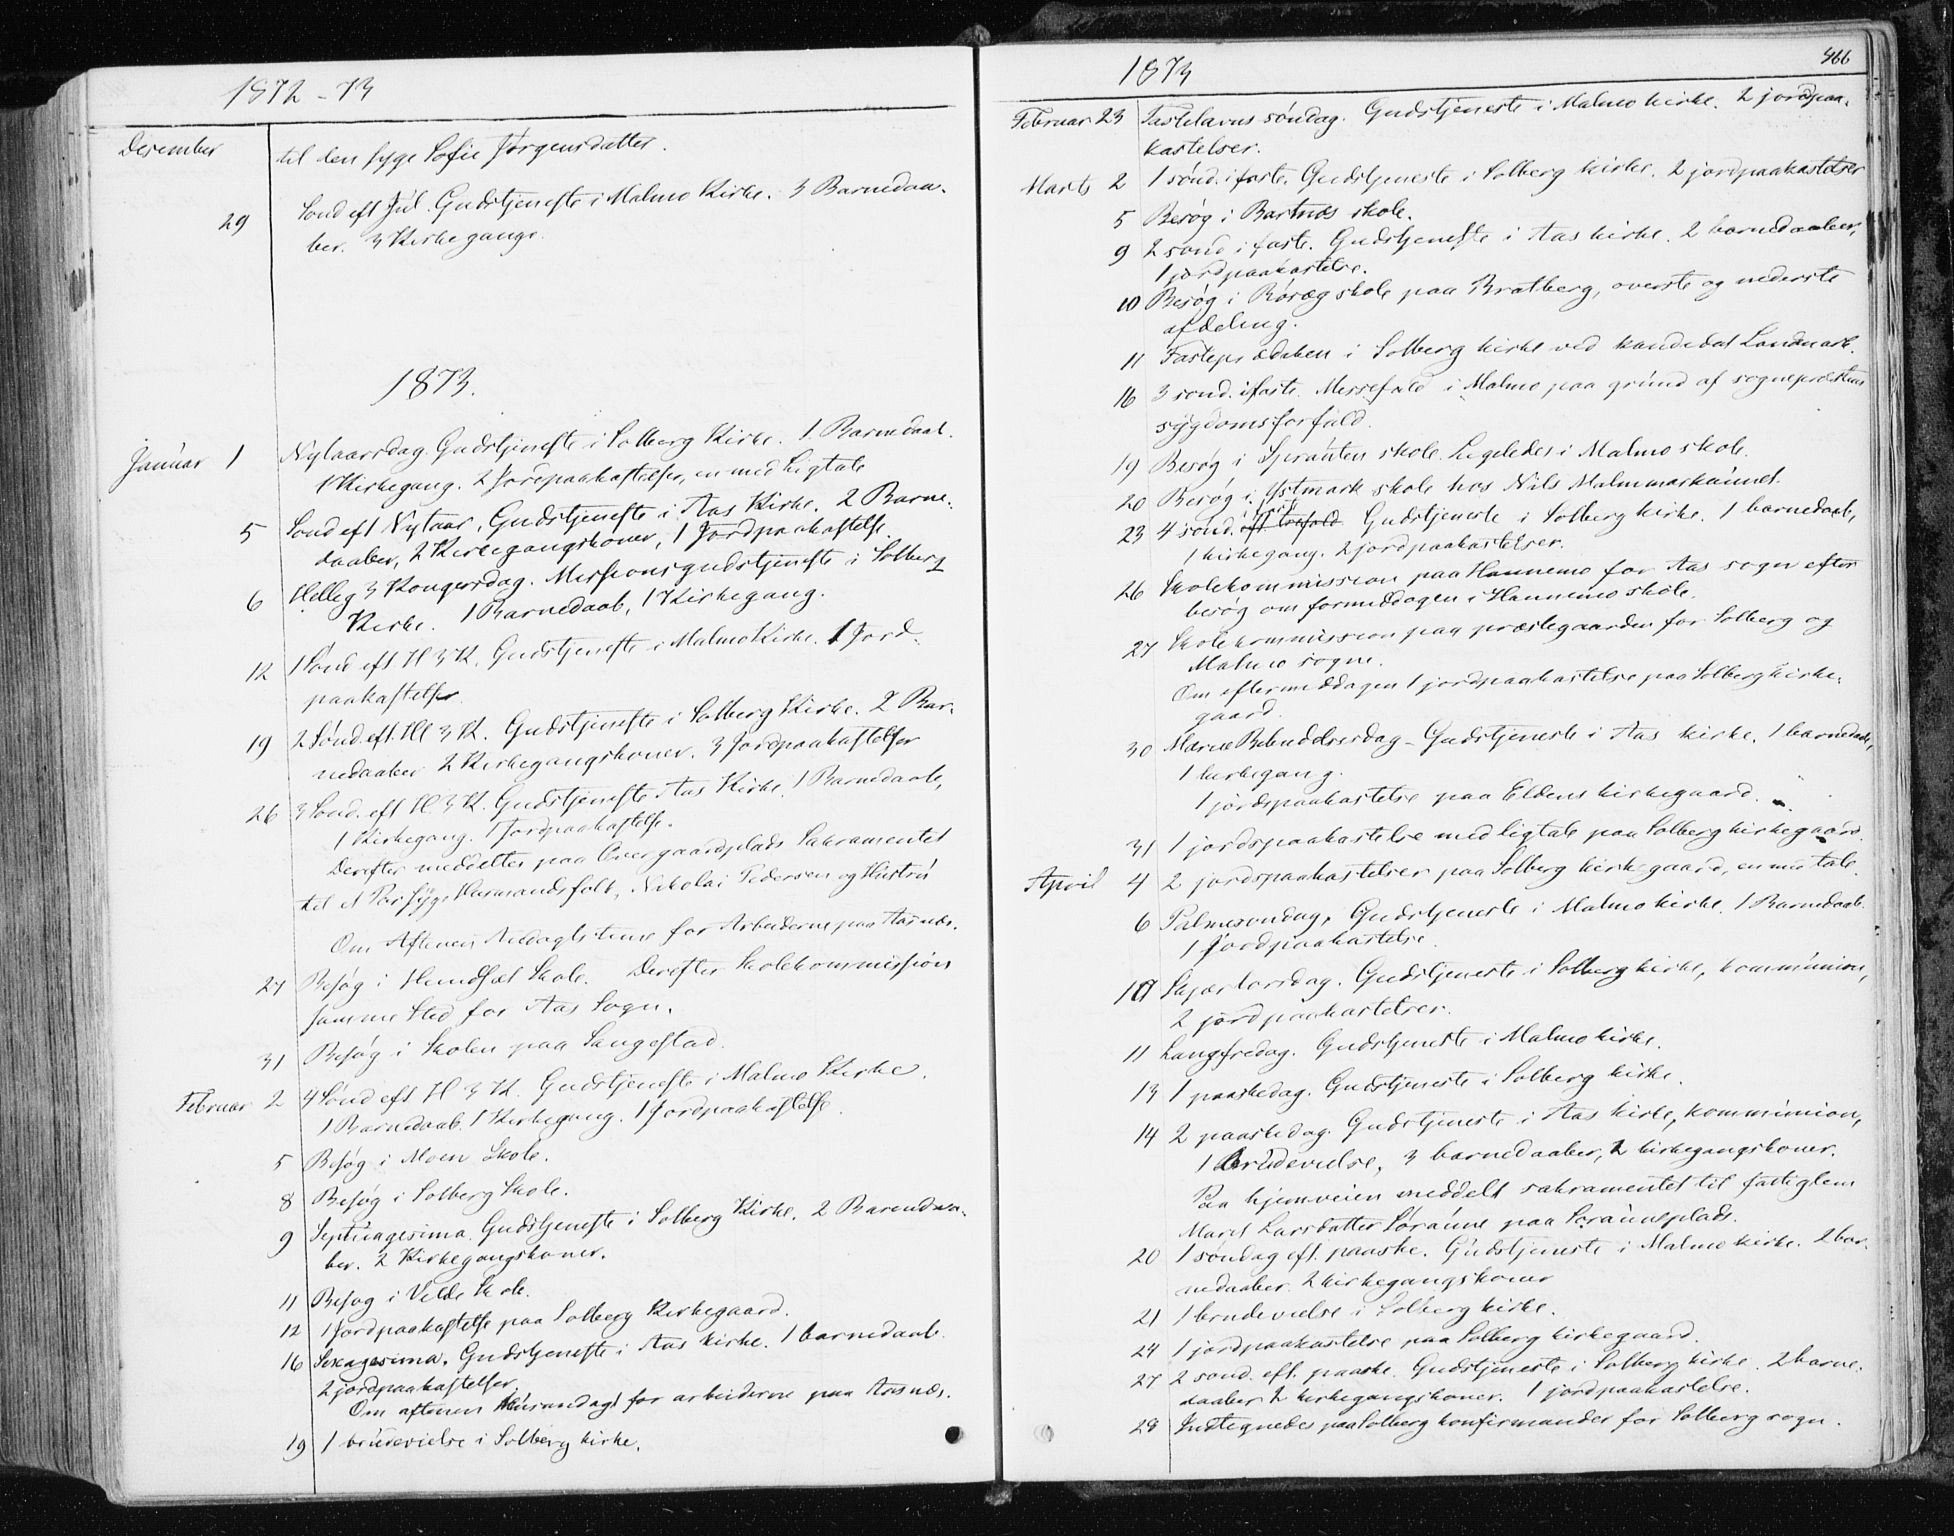 1872-73
Desember til den syge Sofie Jørgensdatter.
29 Sønd eft Jul. Gudstjeneste i Malmo Kirke. 3 Barnedaa-
ber. 3 Kirkegange.
1873.
Januar 1 Nytaarsdag. Gudstjeneste i Solberg Kirke. 1 Barnedaab.
1 Kirkegang. 2 Jordpaakastelser, en med Ligtale
5 Sønd eft Nytaar. Gudstjeneste i Aas Kirke. 2 Barne-
daaber, 2 Kirkegangskoner, 1 Jordpaakastelse.
6 Hellig 3 Kongersdag. Missionsgudstjeneste i Solberg
Kirke. 1 Barnedaab, 1 Kirkegang.
12 1 Sønd eft. H 3 K. Gudstjeneste i Malmo Kirke. 1 Jord-
paakastelse
19 2 Sønd. eft. Hl 3 K. Gudstjeneste i Solberg Kirke. 2 Bar-
nedaaber 2 Kirkegangskoner. 3 Jordpaakastelser
26 3 Sønd. eft H 3 K. Gudstjeneste i Aas Kirke. 1 Barnedaab,
1 Kirkegang. 1 Jordpaakastelse.
Derefter meddeltes paa Overgaardplads Sakramentet
til Husmandsfolk, Nikolai Pedersen og Hustru
Om Aftenen for Arbeiderne paa Aasnæs.
27 Besøg i Skole. Derefter Skolekommission
samme sted for Aas Sogn.
31 Besøg i Skolen paa Langestad.
Februar 2 4 Sønd eft H 3 K. Gudstjeneste i Malmo Kirke.
1 Barnedaab. 1 Kirkegang. 1 Jordpaakastelse.
5 Besøg i Moen Skole.
8 Besøg i Solberg Skole.
9 Septuagesima. Gudstjeneste i Solberg Kirke. 2 Barnedaa-
ber. 2 Kirkegangskoner.
11 Besøg i Velde Skole.
12 1 Jordpaakastelse paa Solberg Kirkegaard.
16 Sexagesima. Gudstjeneste i Aas kirke. 1 barnedaab.
2 jordpaakastelser
Om aftenen for arbeiderne paa Aasnæs.
19 1 brudevielse i Solberg kirke.
1873
466
Februar 23 Fastelavns søndag. Gudstjeneste i Malmo kirke. 2 jordpaa-
kastelser.
Marts 2 1 sønd. i faste. Gudstjeneste i Solberg kirke. 2 jordpaakastelser
5 Besøg i Bartnæs skole.
9 2 sønd i faste. Gudstjeneste i Aas kirke. 2 barnedaaber,
1 jordpaakastelse.
10 Besøg i Røsæg skole paa Bratberg, øverste og nederste
afdeling.
11 Fasteprædiken i Solberg kirke ved kandidat Landmark.
16 3 sønd. i faste. Messefald i Malmo paa grund af sogneprestens
sygdomsforfald.
19 Besøg i skole. Ligeledes i Malmo skole.
20 Besøg i Østmark skole hos Nils
23 4 sønd. i faste Gudstjeneste i Solberg kirke. 1 barnedaab,
1 kirkegang. 2 jordpaakastelser.
26 Skolekommission paa Hannemo for Aas sogn efter
besøg om formiddagen i Hannemo skole.
27 Skolekommission paa præstegaarden for Solberg og
Malmo sogne.
Om eftermiddagen 1 jordpaakastelse paa Solberg kirke-
gaard.
30 Mariæ Bebudelsesdag - Gudstjeneste i Aas kirke. 1 barnedaab,
1 kirkegang.
1 jordspaakastelse paa Eldens kirkegaard.
31 1 jordspaakastelse med ligtale paa Solberg kirkegaard.
April 4 2 jordspaakastelser paa Solberg kirkegaard, en med tale.
6 Palmesøndag. Gudstjeneste i Malmo kirke. 1 Barnedaab.
1 Jordpaakastelse.
10 Skjærtorsdag. Gudstjeneste i Solberg kirke, kommunion,
2 jordpaakastelser.
11 Langfredag. Gudstjeneste i Malmo kirke.
13 1 paaskedag. Gudstjeneste i Solberg kirke.
14 2 paaskedag. Gudstjeneste i Aas kirke, kommunion,
1 brudevielse, 3 barnedaaber, 2 kirkegangskoner.
Paa hjemveien meddelt sakramentet til fattiglem
Maret Larsdatter paa
20 1 søndag eft. paaske. Gudstjeneste i Malmo kirke. 2 bar-
nedaaber. 2 kirkegangskoner
21 1 brudevielse i Solberg kirke.
24 1 jordpaakastelse paa Solberg kirkegaard.
27 2 sønd. eft. paaske. Gudstjeneste i Solberg kirke. 2 barne-
daaber 2 kirkegangskoner. 1 jordpaakastelse.
28 Indtegnedes paa Solberg konfirmander for Solberg sogn.